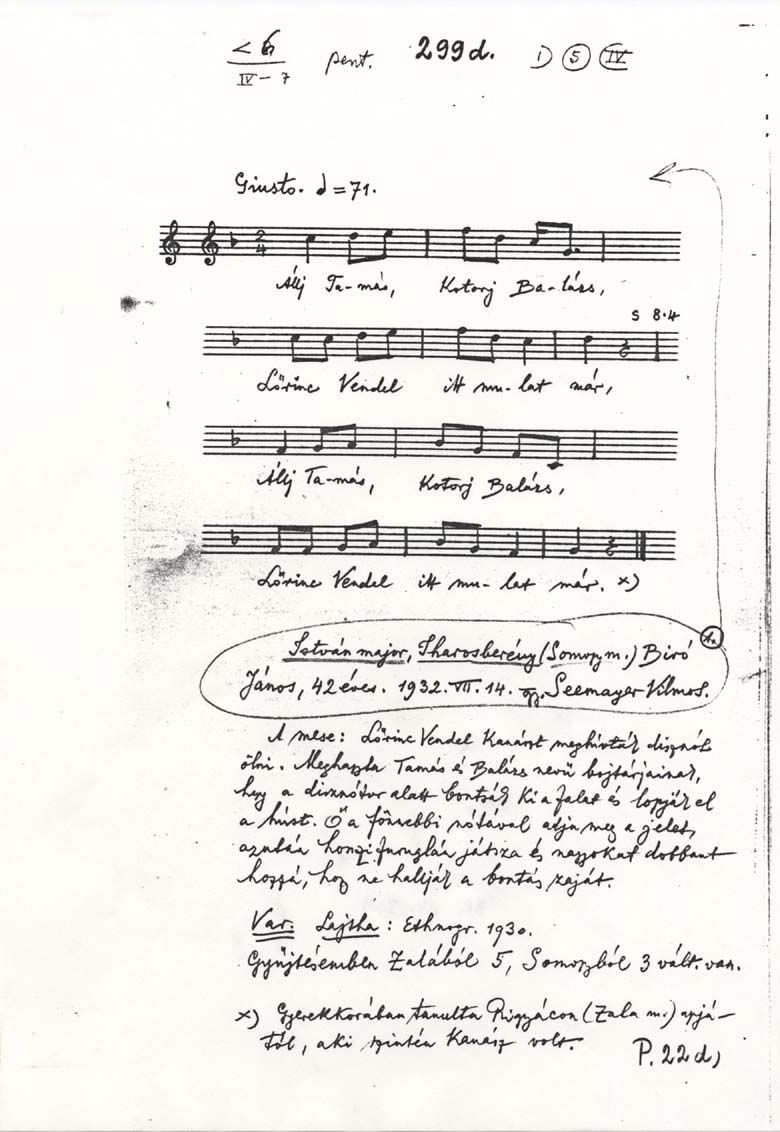 < 6
IV – 7
pent.
299d.
1) 5 IV
Giusto. ♩ = 71.
2
4
Állj Ta-más, Kotorj Ba-lázs,
s 8.4
Lőrinc Vendel itt mu-lat már,
Állj Ta-más, Kotorj Balázs,
Lőrinc Vendel itt mu-lat már. x)
István major, Iharosberény (Somogy m.) Biró
János, 42 éves. 1932. VII. 14. Seemayer Vilmos.
A mese: Lőrinc Vendel Kanászt meghivták disznót
ölni. Meghagyta Tamás és Balázs nevü bojtárjainak,
hogy a disznótor alatt bontsák ki a falat és lopják el
a húst. Ő a fönnebbi nótával adja meg a jelet,
azután hosszifuruglán játsza és nagyokat dobbant
hozzá, hogy ne hallják a bontás zaját.
Var: Lajtha: Ethnogr. 1930.
Gyüjtésemben Zalából 5, Somogyból 3 vált. van.
x) Gyerekkorában tanulta Rigyácon (Zala m.) apjá-
tól, aki szintén Kanász volt.
P. 22d)